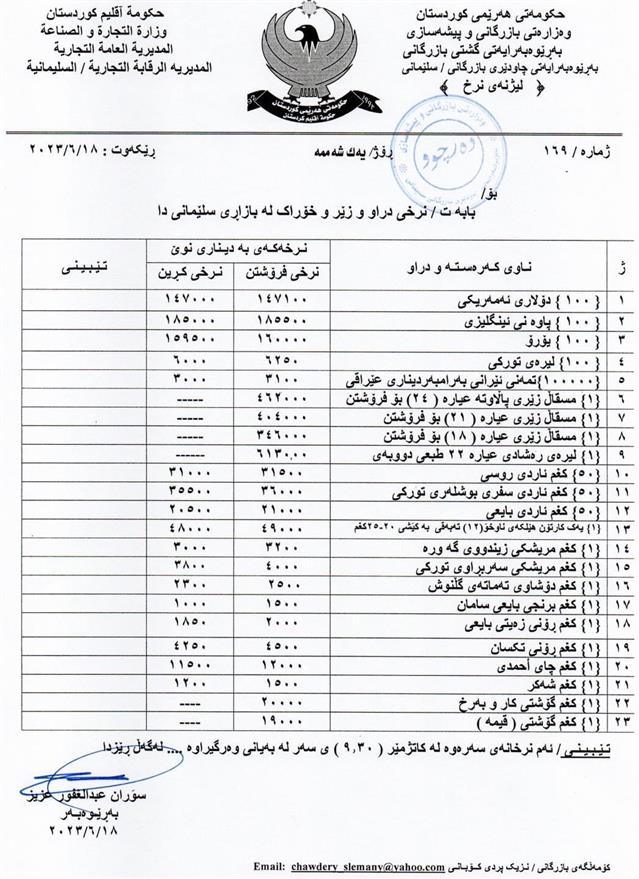 حکومەتی هەرێمی کوردستان
وەزارەتی بازرگانی و پیشەسازی
بەڕێوەبەرایەتی گشتی بازرگانی
بەڕێوەبەرایەتی چاودێری بازرگانی / سلێمانی
﴿ لیژنەی نرخ ﴾
حكومة أقليم كوردستان
وزارة التجارة و الصناعة
المديرية العامة التجارية
المديريه الرقابة التجارية / السليمانية
حکومەتی هەرێمی کوردستان
حكومة اقليم كوردستان
ژمارە / ١٦٩ رۆژ/ یەك شەممە ڕێکەوت : ٢٠٢٣/٦/١٨
دەرچوو
بۆ/
بابەت / نرخی دراو و زێر و خۆراک لە بازاڕی سلێمانی دا
ژ ناوی کەرەستە و دراو نرخەکەی بە دیناری نوێ تێبینی
نرخی فرۆشتن نرخی کڕین
١ {١٠٠} دۆلاری ئەمەریکی ١٤٧١٠٠ ١٤٧٠٠٠
٢ {١٠٠} پاوەنی ئینگلیزی ١٨٥٥٠٠ ١٨٥٠٠٠
٣ {١٠٠} یۆرۆ ١٦٠٠٠٠ ١٥٩٥٠٠
٤ {١٠٠} لیرەی تورکی ٦٢٥٠ ٦٠٠٠
٥ {١٠٠٠٠٠}تمەنی ئێرانی بەرامبەردیناری عێراقی ٣١٠٠ ٣٠٠٠
٦ {١} مسقاڵ زێری پاڵاوتە عیارە ( ٢٤) بۆ فرۆشتن ٤٦٢٠٠٠ -----
٧ {١} مسقاڵ زێری عیارە ( ٢١) بۆ فرۆشتن ٤٠٤٠٠٠ -----
٨ {١} مسقاڵ زێری عیارە ( ١٨) بۆ فرۆشتن ٣٤٦٠٠٠ -----
٩ {١} لیرەی رەشادی عیارە ٢٢ طبعی دووبەی ٦١٣٠,٠٠ ------
١٠ {٥٠} کغم ئاردی روسی ٣١٥٠٠ ٣١٠٠٠
١١ {٥٠} کغم ئاردی سفری بوشلەری تورکی ٣٦٠٠٠ ٣٥٥٠٠
١٢ {٥٠} کغم ئاردی بایعی ٢١٠٠٠ ٢٠٥٠٠
١٣ {١} یەک کارتۆن هێلکەی ناوخۆ(١٢) تەبەقی بە کێشی ٢٠-٢٥کغم ٤٩٠٠٠ ٤٨٠٠٠
١٤ {١} کغم مریشکی زیندووی گەورە ٣٢٠٠ ٣٠٠٠
١٥ {١} کغم مریشکی سەربڕاوی تورکی ٤٠٠٠ ٣٨٠٠
١٦ {١} کغم دۆشاوی تەماتەی گڵنوش ٢٥٠٠ ٢٣٠٠
١٧ {١} کغم برنجی بایعی سامان ١٥٠٠ ١٠٠٠
١٨ {١} کغم ڕۆنی زەیتی بایعی ٢٠٠٠ ١٨٥٠
١٩ {١} کغم ڕۆنی تکسان ٤٥٠٠ ٤٢٥٠
٢٠ {١} کغم چای أحمدی ١٢٠٠٠ ١١٥٠٠
٢١ {١} کغم شەکر ١٥٠٠ ١٢٠٠
٢٢ {١} کغم گۆشتی کار و بەرخ ٢٠٠٠٠ ----
٢٣ {١} کغم گۆشتی ( قیمە ) ١٩٠٠٠ ----
تێبینی/ ئەم نرخانەی سەرەوە لە کاتژمێر ( ٩,٣٠ ) ی سەر لە بەیانی وەرگیراوە .... لەگەڵ ڕێزدا
سۆران عبدالغفور عزیز
بەڕێوەبەر
٢٠٢٣/٦/١٨
کۆمەڵگەی بازرگانی / نزیک پردی کۆبانی Email: chawdery_slemany@yahoo.com